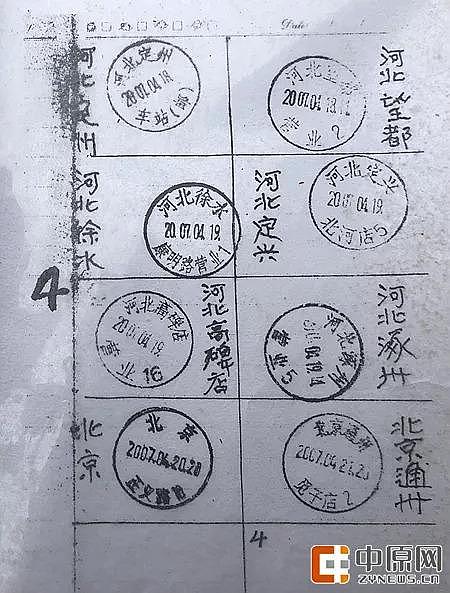 Date
河北定州
河北定州
2007.04.19.
(货)
车站
河北望都
河北望都
2007.04.19.
营业
2
河北徐水
河北徐水
2007.04.19.
康明路营业1
河北定兴
河北定兴
2007.04.19.
北河店5
4
河北高碑店
河北高碑店
2007.04.19.
营业
16
河北涿州
河北涿州
营业5
北京
北京
2007.04.20.20
正义路
北京通州
北京通州
2
4
中原网
ZYNEWS.CN